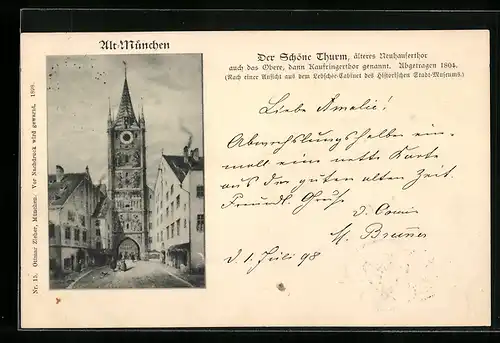 Alt-München
Der Schöne Thurm, älteres Neuhauserthor
auch das Obere, dann Kaufringerthor genannt. Abgetragen 1804.
(Nach einer Ansicht aus dem Lebschée-Cabinet des Historischen Stadt-Museums.)
Liebe Amalie!
Abwechslungshalber ein-
mal eine nette Karte
aus der guten alten Zeit.
Freundl. Gruß
d. Cousin
M. Brunner
d. 1. Juli 98
Nr. 15. Ottmar Zieher, München. Vor Nachdruck wird gewarnt. 1898.